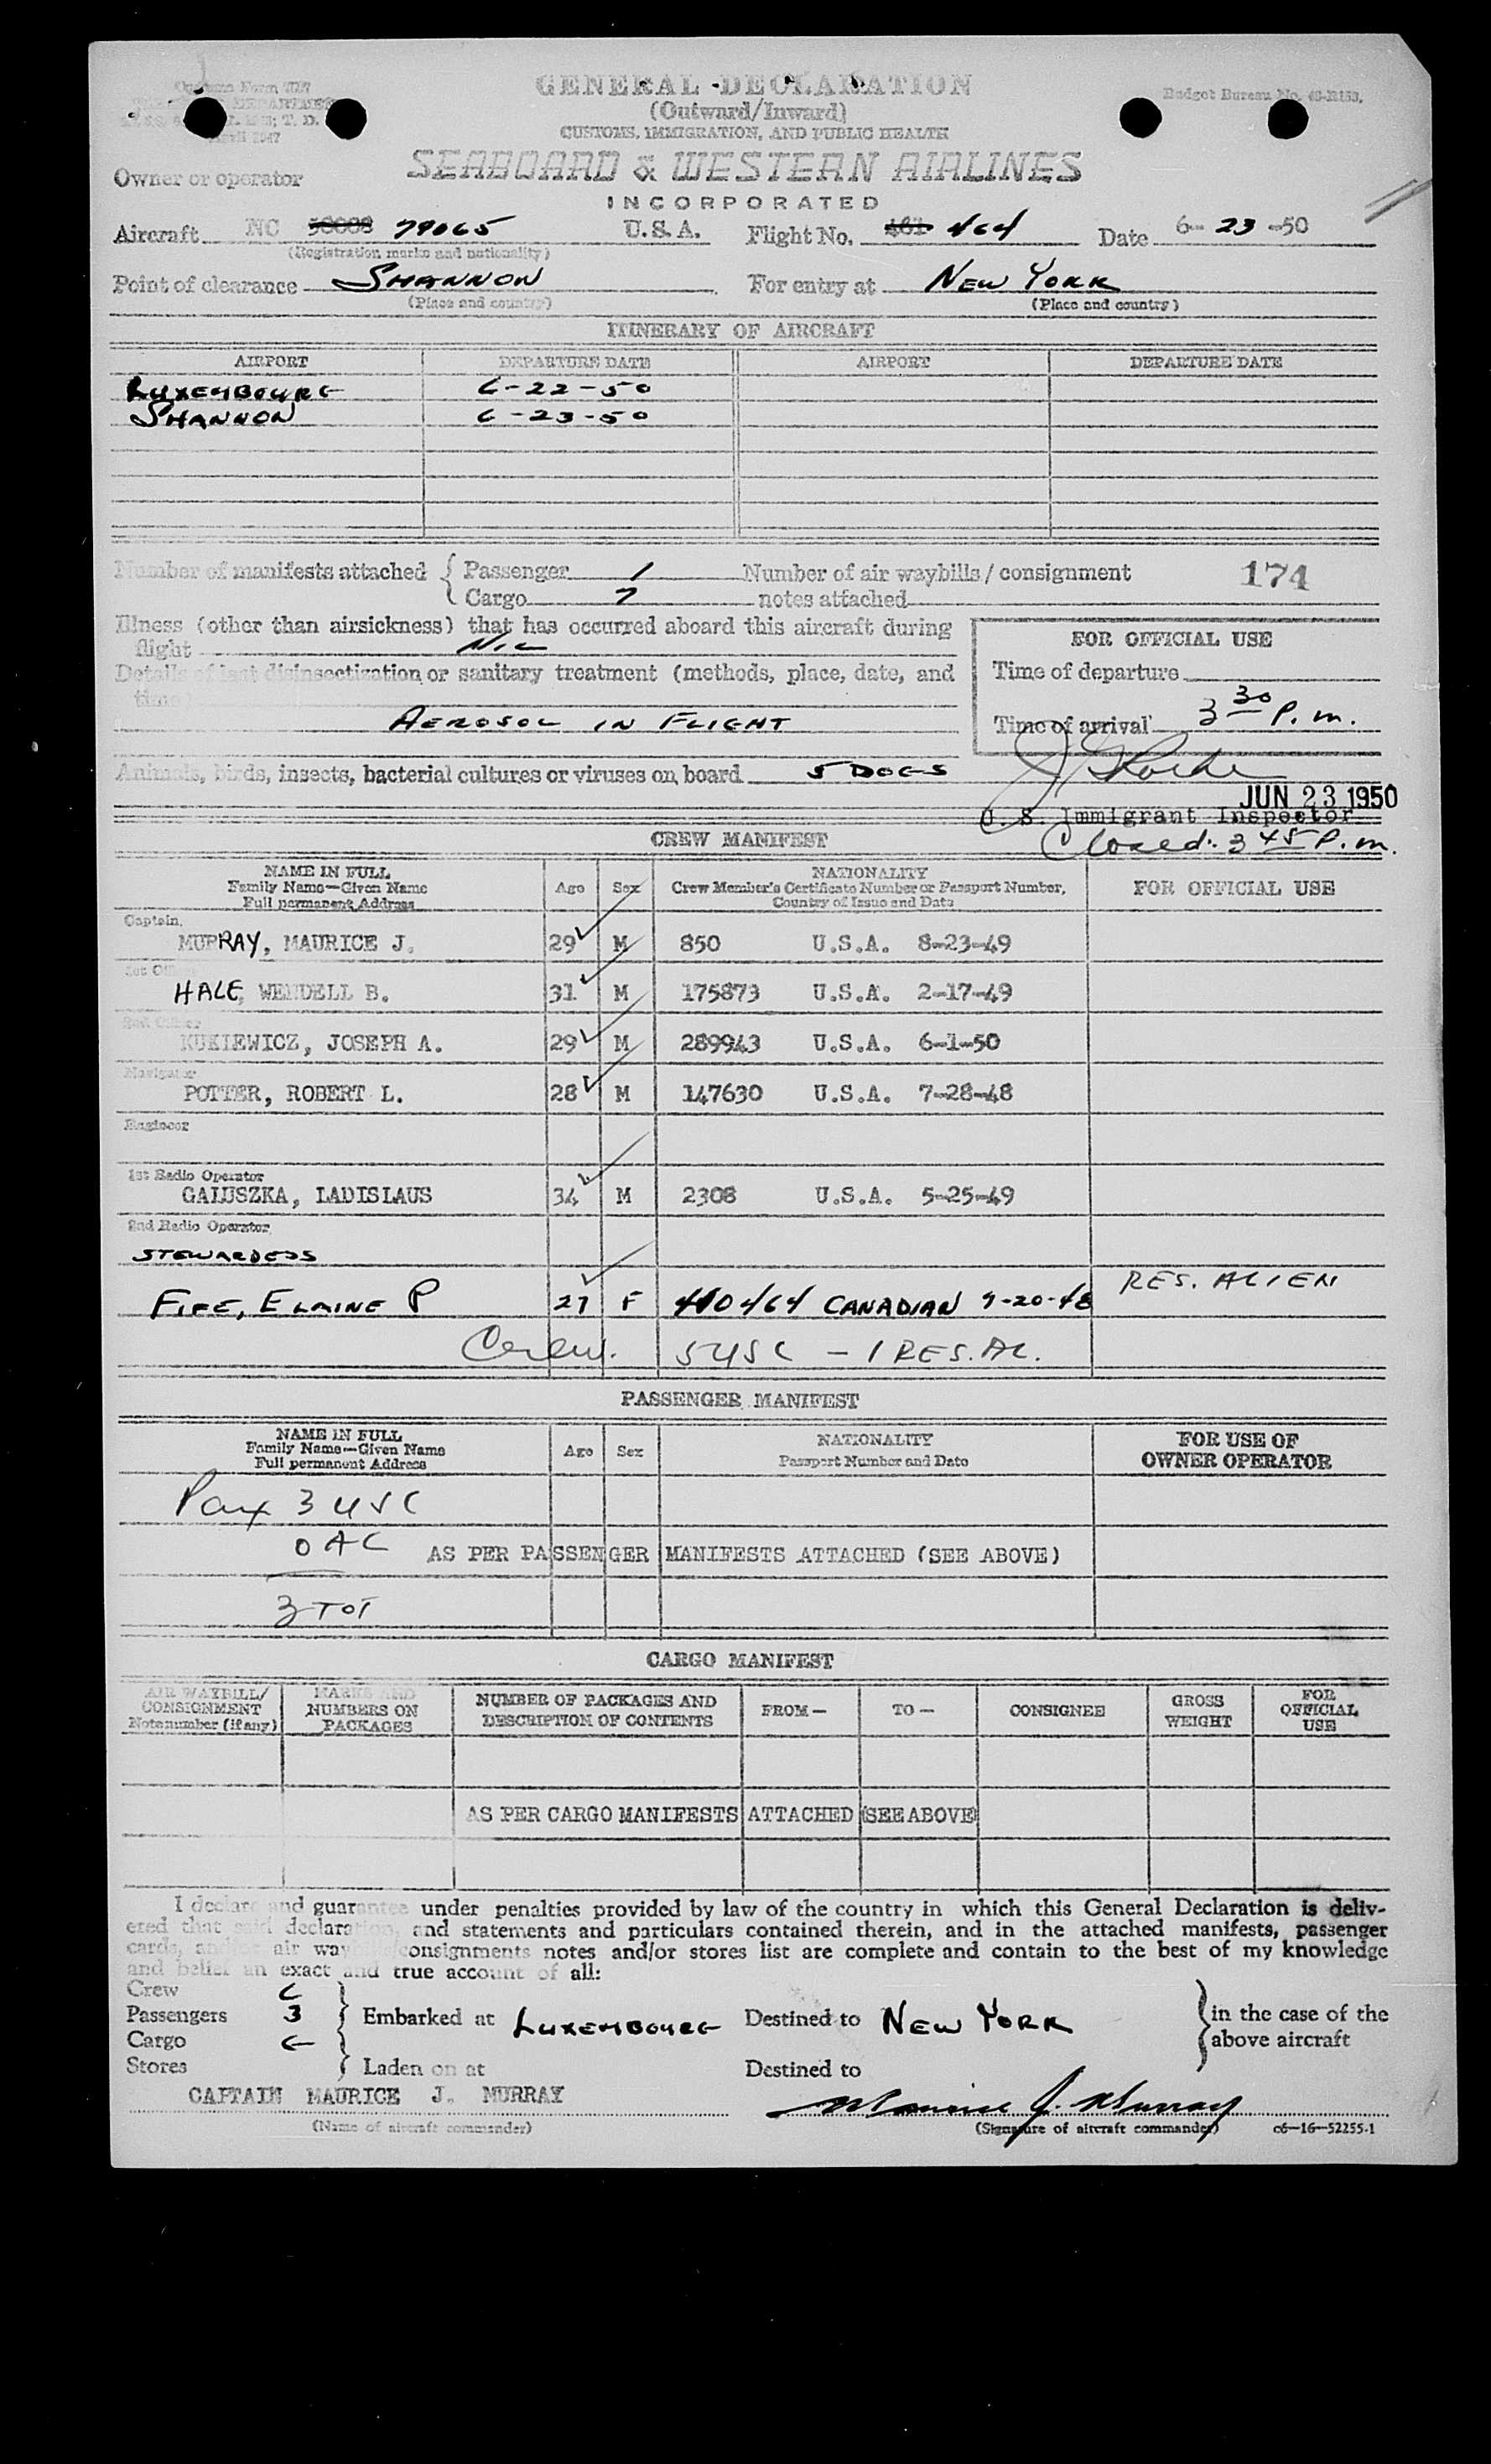 Customs Form 7507
GENERAL DECLARATION
(Outward/Inward)
CUSTOMS, IMMIGRATION, AND PUBLIC HEALTH
Budget Bureau No.
April 1947
SEABOARD & WESTERN AIRLINES
INCORPORATED
Owner or operator
Aircraft NC 79065 U.S.A. Flight No. 464 Date 6-23-50
(Registration marks and nationality)
Point of clearance SHANNON For entry at NEW YORK
(Place and country) (Place and country)
ITINERARY OF AIRCRAFT
AIRPORT DEPARTURE DATE AIRPORT DEPARTURE DATE
LUXEMBOURG 6-22-50
SHANNON 6-23-50
Number of manifests attached { Passenger 1 Number of air waybills / consignment 174
Cargo 7 notes attached
Illness (other than airsickness) that has occurred aboard this aircraft during
flight NIL
FOR OFFICIAL USE
Details of last disinsectization or sanitary treatment (methods, place, date, and
time)
Time of departure
AEROSOL IN FLIGHT
Time of arrival 3 30 P.m.
Animals, birds, insects, bacterial cultures or viruses on board 5 DOGS
JUN 23 1950
U. S. Immigrant Inspector
Closed: 3 45 P.m.
CREW MANIFEST
NAME IN FULL
Family Name—Given Name
Full permanent Address
Age Sex
NATIONALITY
Crew Member's Certificate Number or Passport Number,
Country of Issue and Date
FOR OFFICIAL USE
Captain
MURRAY, MAURICE J. 29 M 850 U.S.A. 8-23-49
HALE, WENDELL B. 31 M 175873 U.S.A. 2-17-49
2nd Officer
KUKIEWICZ, JOSEPH A. 29 M 289943 U.S.A. 6-1-50
Navigator
POTTER, ROBERT L. 28 M 147630 U.S.A. 7-28-48
Engineer
1st Radio Operator
GALUSZKA, LADISLAUS 34 M 2308 U.S.A. 5-25-49
2nd Radio Operator
STEWARDESS
FIFE, ELAINE P 27 F 410464 CANADIAN 9-20-48 RES. ALIEN
Crew. 5 USC - 1 RES. AL.
PASSENGER MANIFEST
NAME IN FULL
Family Name—Given Name
Full permanent Address
Age Sex
NATIONALITY
Passport Number and Date
FOR USE OF
OWNER OPERATOR
Pax 3 USC
0 AC AS PER PASSENGER MANIFESTS ATTACHED (SEE ABOVE)
3 TOT
CARGO MANIFEST
AIR WAYBILL/
CONSIGNMENT
Note number (if any)
MARKS AND
NUMBERS ON
PACKAGES
NUMBER OF PACKAGES AND
DESCRIPTION OF CONTENTS
FROM— TO— CONSIGNEE
GROSS
WEIGHT
FOR
OFFICIAL
USE
AS PER CARGO MANIFESTS ATTACHED (SEE ABOVE)
I declare and guarantee under penalties provided by law of the country in which this General Declaration is deliv-
ered that said declaration, and statements and particulars contained therein, and in the attached manifests, passenger
cards, and/or air waybills/consignments notes and/or stores list are complete and contain to the best of my knowledge
and belief an exact and true account of all:
Crew 6
Passengers 3 Embarked at LUXEMBOURG Destined to NEW YORK in the case of the
Cargo above aircraft
Stores Laden on at Destined to
CAPTAIN MAURICE J. MURRAY Maurice J. Murray
(Name of aircraft commander) (Signature of aircraft commander) c6—16—52255-1